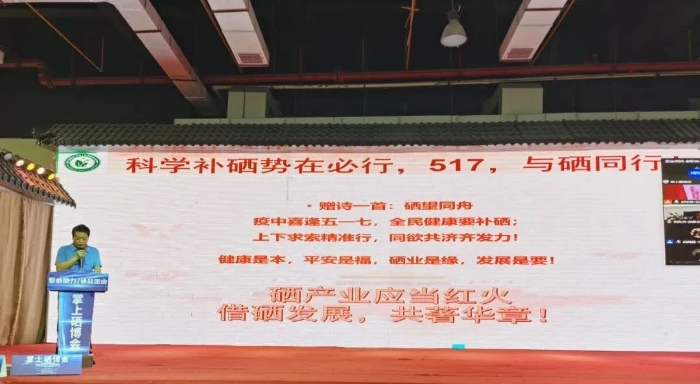 科学补硒势在必行，517，与硒同行
·赠诗一首：硒望同舟
疫中喜逢五一七，全民健康要补硒；
上下求索精准行，同欲共济齐发力！
健康是本，平安是福，硒业是缘，发展是要！
硒产业应当红火
借硒发展，共著华章！
掌上硒博会
掌上硒博会